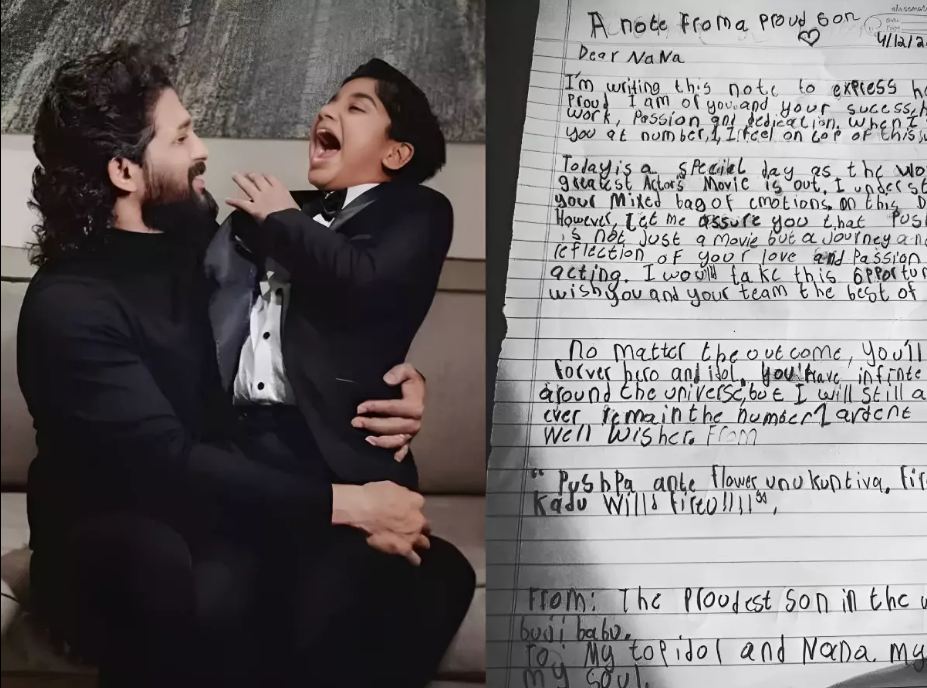 A note from a proud son
4/12/2
Dear NaNa
I'm writing this note to express ho
Proud I am of you and your sucess, h
work, Passion and dedication. When I
you at number 1, I feel on top of this w
Today is a special day as the wo
greatest Actor's Movie is out, I underst
your Mixed bag of emotions on this D
However, Let me assure you that Pus
is not Just a movie but a Journey an
reflection of your love and Passion
acting. I would take this opportun
wish you and your team the best of
No matter the outcome, You'll
forver hero and idol. you'll have infinte
around the universe, but I will still a
ever remain the number 1 ardent
Well Wisher. From
" Pushpa ante flower unukuntiva, fir
Kadu Willd fireu!!!!",
From: The Proudest Son in the w
buji babu.
To: My top idol and Nana my
my soul.